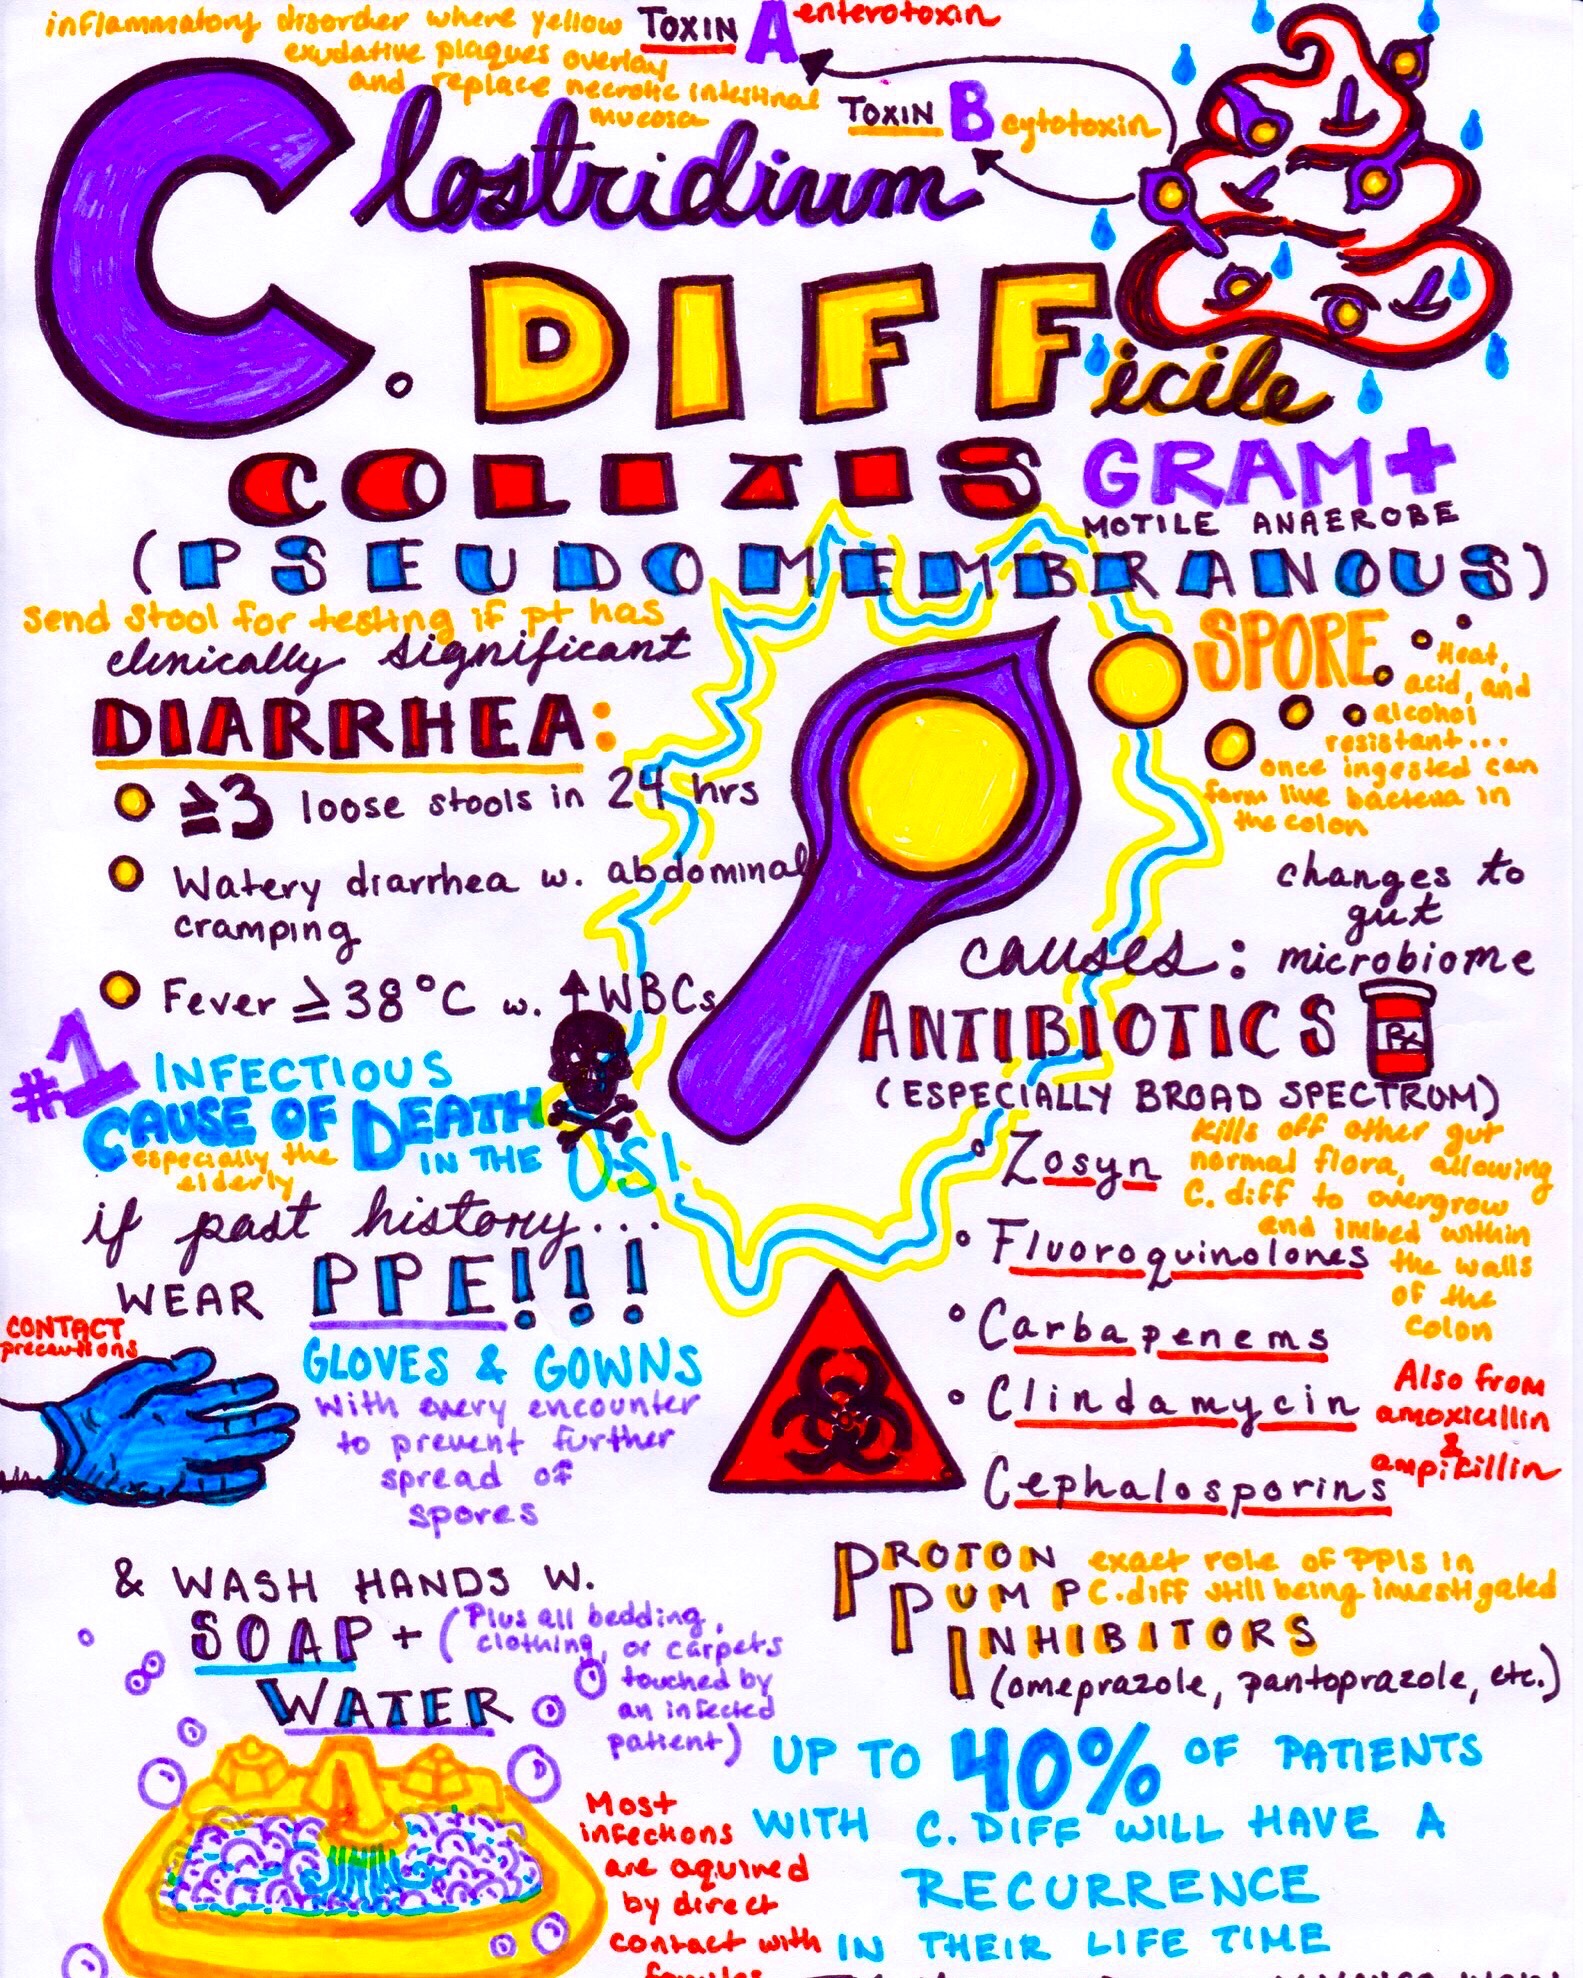 inflammatory disorder where yellow
exudative plaques overlay
and replace necrotic intestinal
mucosa
TOXIN A enterotoxin
TOXIN B cytotoxin
Clostridium
C. DIFFicile
COLITIS
GRAM+
MOTILE ANAEROBE
(PSEUDOMEMBRANOUS)
send stool for testing if pt has
clinically significant
DIARRHEA:
≥3 loose stools in 24 hrs
Watery diarrhea w. abdominal
cramping
Fever ≥ 38°C w. ↑WBCs
SPORE
Heat,
acid, and
alcohol
resistant...
once ingested can
form live bacteria in
the colon
#1 INFECTIOUS
CAUSE OF DEATH
especially the
elderly
IN THE US!
causes: changes to
gut
microbiome
ANTIBIOTICS
Rx
(ESPECIALLY BROAD SPECTRUM)
Kills off other gut
normal flora, allowing
C. diff to overgrow
and imbed within
the walls
of the
colon
• Zosyn
• Fluoroquinolones
• Carbapenems
• Clindamycin
Cephalosporins
Also from
amoxicillin
&
ampicillin
if past history...
WEAR PPE!!!
CONTACT
precautions
GLOVES & GOWNS
With every encounter
to prevent further
spread of
spores
& WASH HANDS W.
SOAP +
WATER
(Plus all bedding,
clothing, or carpets
touched by
an infected
patient)
PROTON
PUMP
INHIBITORS
exact role of PPIs in
C. diff still being investigated
(omeprazole, pantoprazole, etc.)
UP TO 40% OF PATIENTS
WITH C. DIFF WILL HAVE A
RECURRENCE
IN THEIR LIFE TIME
Most
infections
are aquired
by direct
contact with